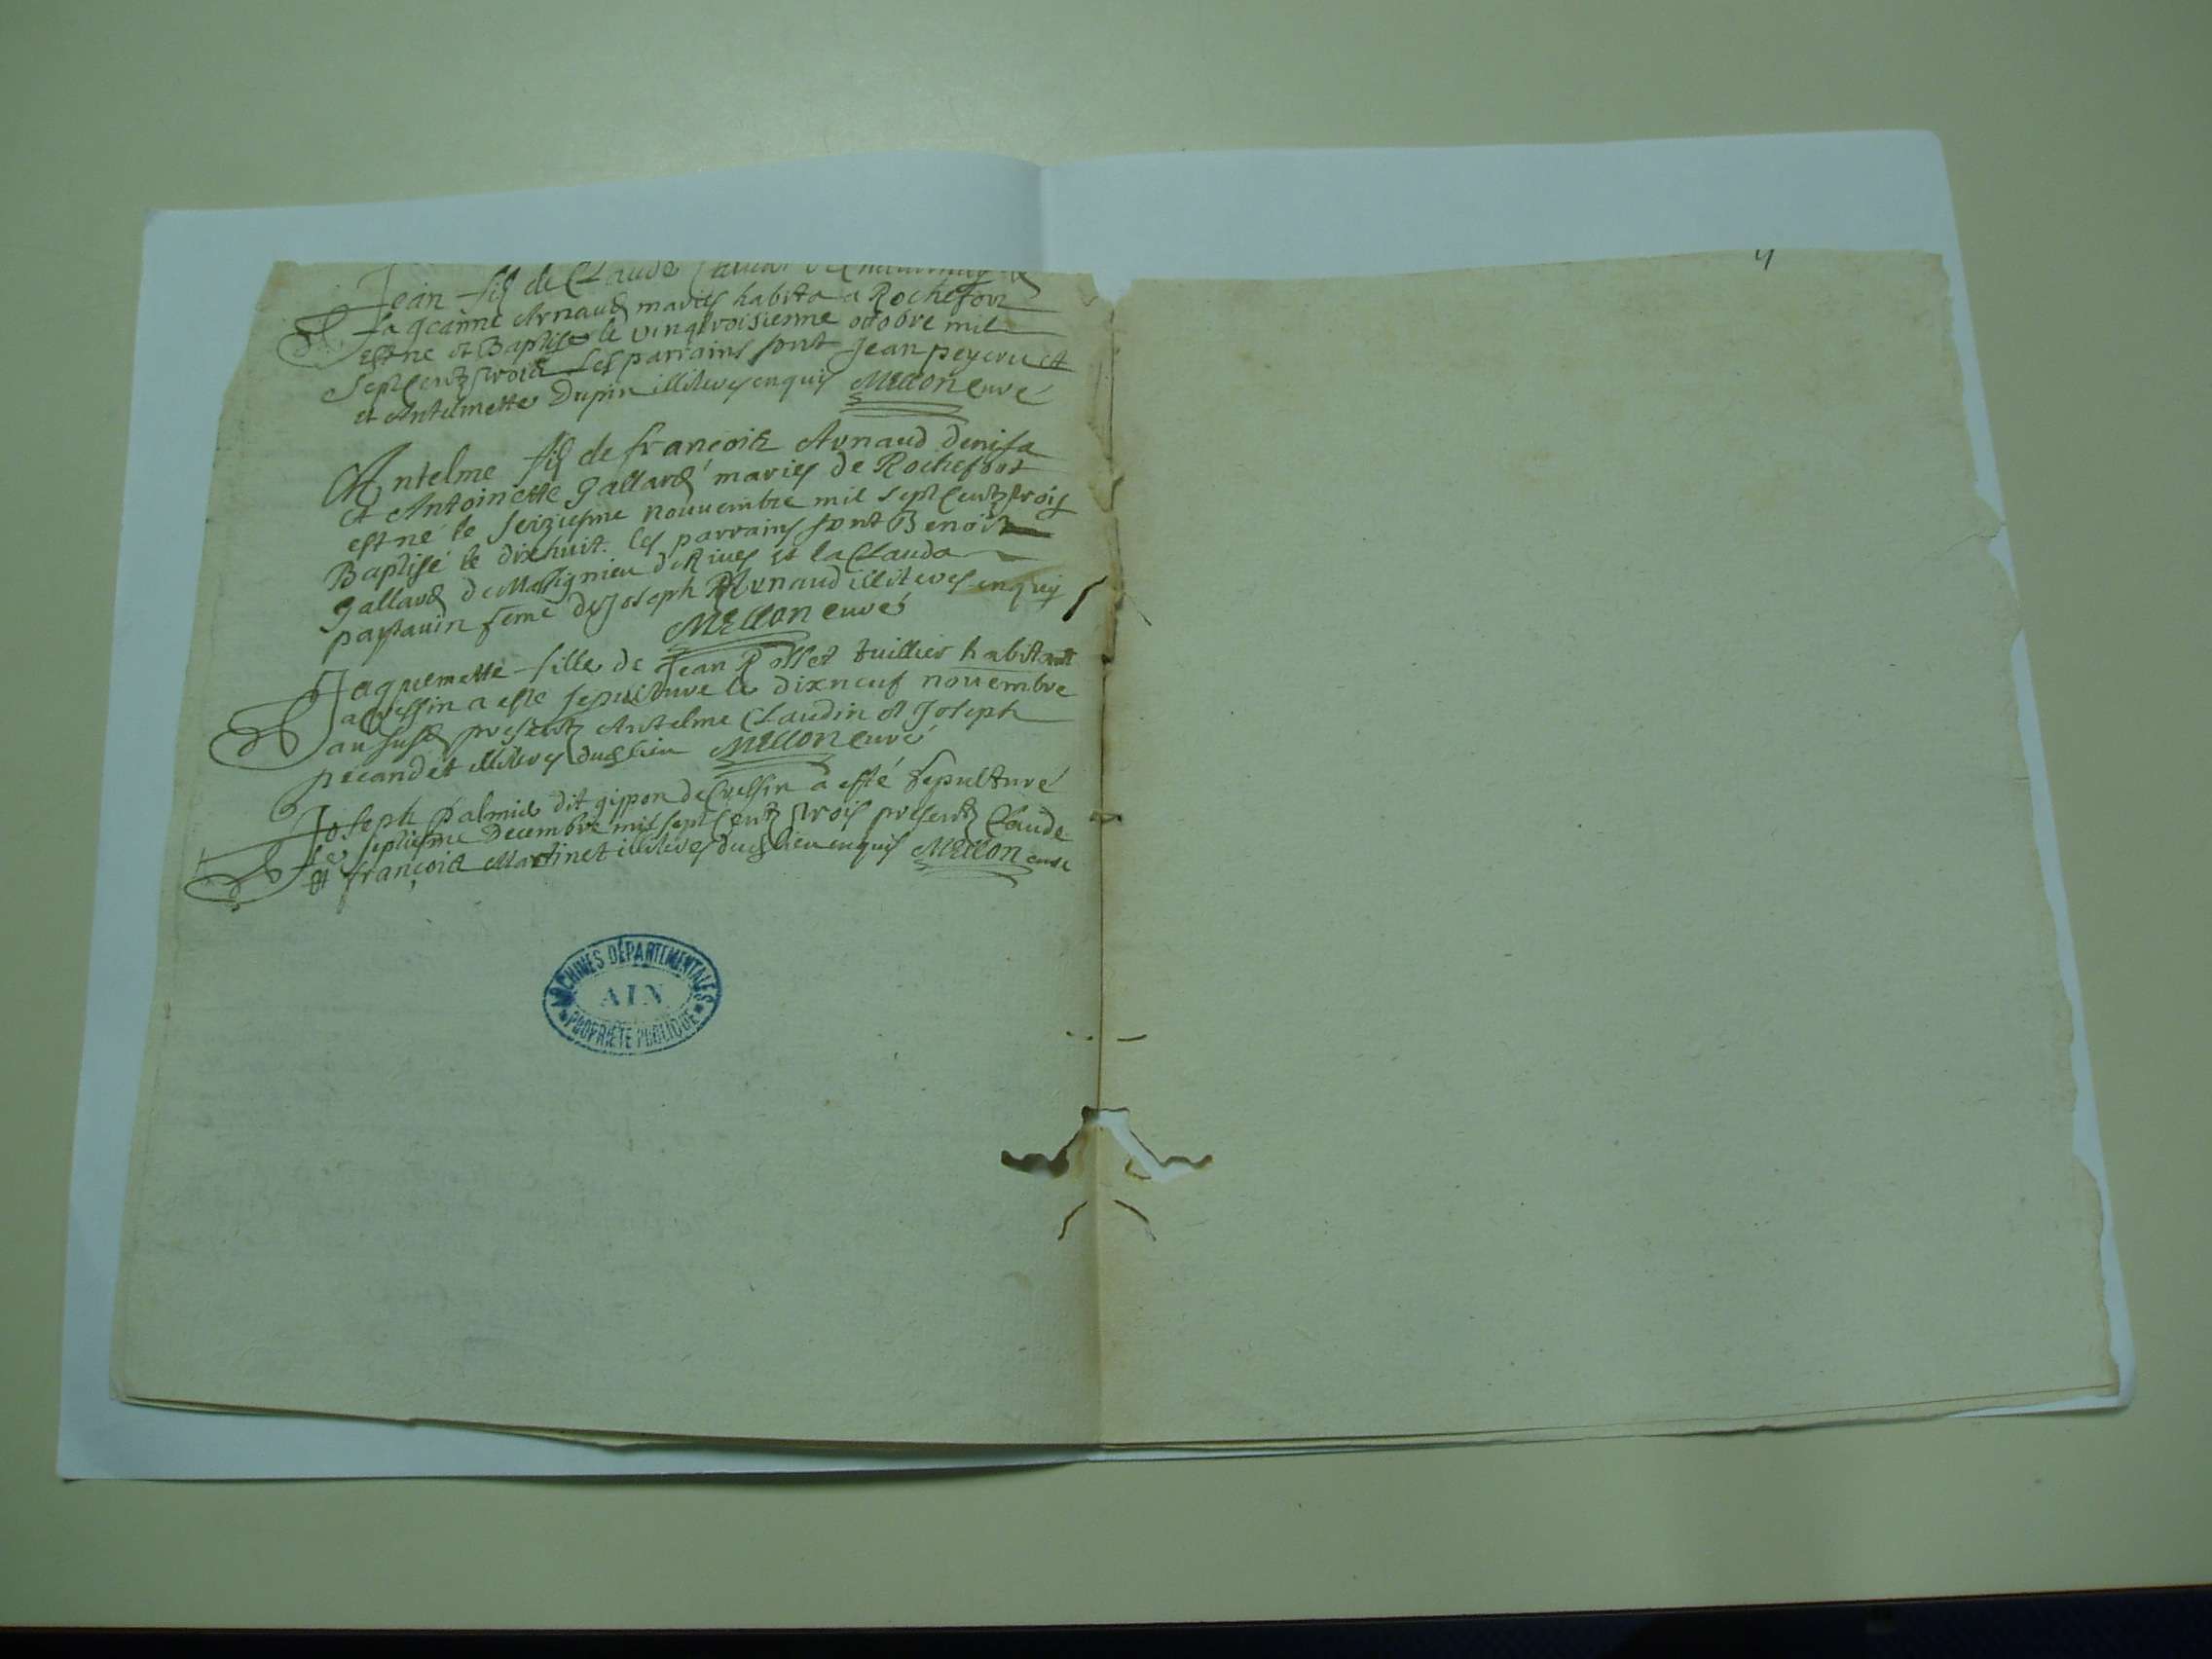 Jean fils de Claude
la jeanne Arnaud mariés habitā a Rochefort
est né et Baptisé le vingtroisiesme octobre mil
sept centz trois Les parrains sont Jean peyeru et
et Antelmette Dupin illiteres enquis MELLON curé
Antelme fils de françois Arnaud denisa
et Antoinette gallard mariés de Rochefort
est né le seiziesme nouuembre mil sept centz trois
Baptisé le dixhuit. les parrains sont Benoit
gallard de Massignieu de Riues et la Clauda
paysauin feme de Joseph Arnaud illiteres enquis
MELLON curé
Jaquemette fille de Jean Rosset tuillier habitant
a Cressin a esté sepulturé le dixneuf nouembre
au susd presentz Antelme Claudin et Joseph
pecandet illiteres dud lieu MELLON curé
Joseph palmid dit gippon de Cressin a esté sepulturé
le septiesme Decembre mil sept centz trois presentz Claude
et françois Martinet illiteres dud lieu enquis MELLON curé
ARCHIVES DÉPARTEMENTALES
AIN
PROPRIÉTÉ PUBLIQUE
4